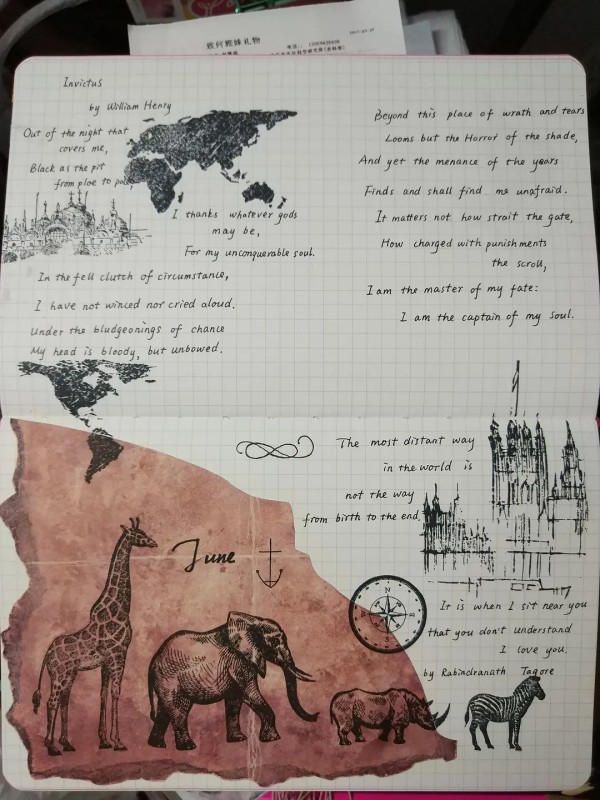 致何雅妹礼物
Invictus
by William Henry
Out of the night that
covers me,
Black as the pit
from ploe to pole
I thanks whatever gods
may be,
For my unconquerable soul.
In the fell clutch of circumstance,
I have not winced nor cried aloud.
Under the bludgeonings of chance
My head is bloody, but unbowed.
Beyond this place of wrath and tears
Looms but the Horror of the shade,
And yet the menance of the years
Finds and shall find me unafraid.
It matters not how strait the gate,
How charged with punishments
the scroll,
I am the master of my fate:
I am the captain of my soul.
The most distant way
in the world is
not the way
from birth to the end.
June
N
It is when I sit near you
that you don't understand
I love you.
by Rabindranath Tagore